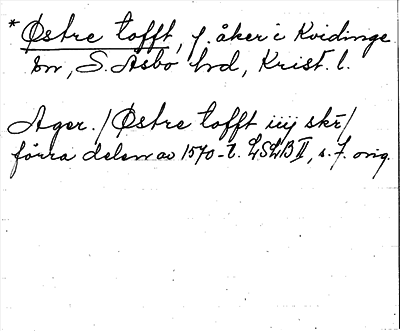 * Østre tofft, f. åker i Kvidinge
sn, S. Åsbo hd, Krist. l.
Ager. / Østre tofft iiij skr̄ /
förra delen av 1570-t. LSLB II, s. 7. orig.